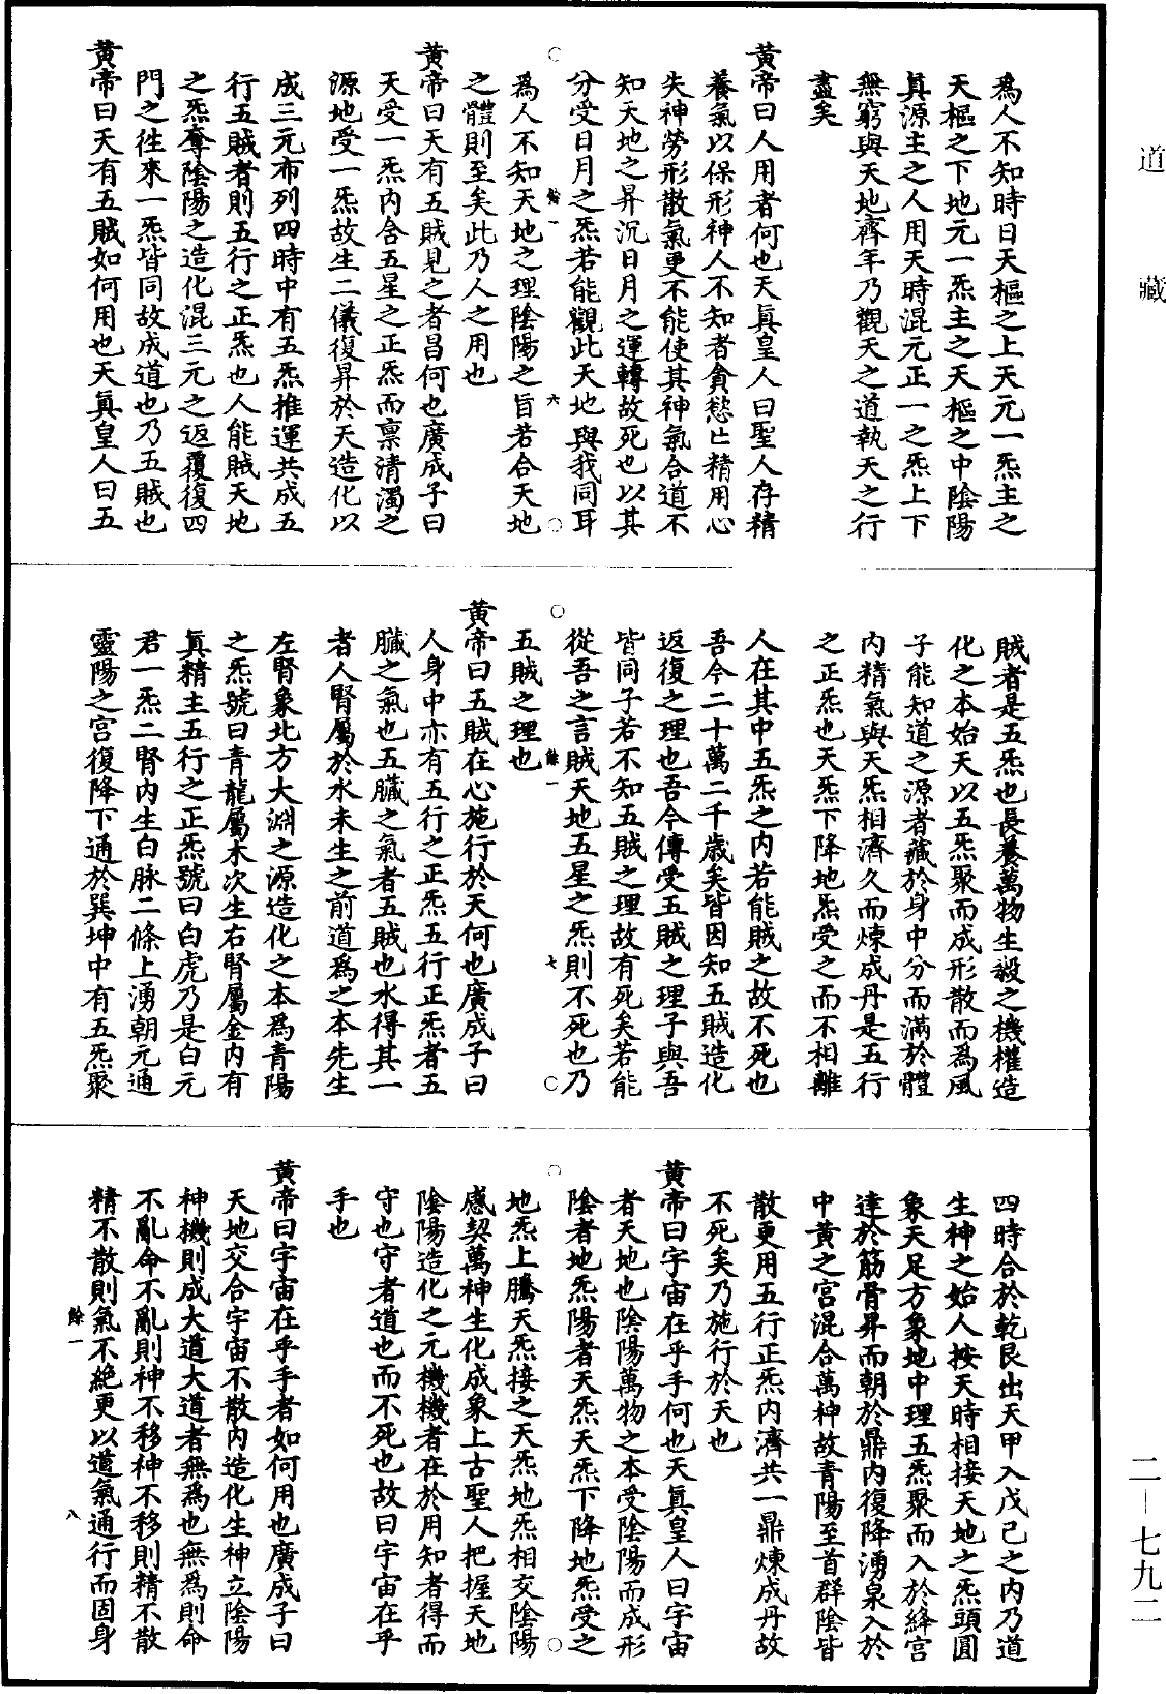 道藏
爲人不知時日天樞之上天元一炁主之
天樞之下地元一炁主之天樞之中陰陽
眞源主之人用天時混元正一之炁上下
無窮與天地齊年乃觀天之道執天之行
盡矣
黃帝曰人用者何也天眞皇人曰聖人存精
養氣以保形神人不知者貪慾亡精用心
失神勞形散氣更不能使其神氣合道不
知天地之昇沉日月之運轉故死也以其
分受日月之炁若能觀此天地與我同耳
餘一 六
爲人不知天地之理陰陽之旨若合天地
之體則至矣此乃人之用也
黃帝曰天有五賊見之者昌何也廣成子曰
天受一炁內含五星之正炁而稟清濁之
源地受一炁故生二儀復昇於天造化以
成三元布列四時中有五炁推運共成五
行五賊者則五行之正炁也人能賊天地
之炁奪陰陽之造化混三元之返覆復四
門之徃來一炁皆同故成道也乃五賊也
黃帝曰天有五賊如何用也天眞皇人曰五
賊者是五炁也長養萬物生殺之機權造
化之本始天以五炁聚而成形散而爲風
子能知道之源者藏於身中分而滿於體
內精氣與天炁相濟久而煉成丹是五行
之正炁也天炁下降地炁受之而不相離
人在其中五炁之內若能賊之故不死也
吾今二十萬二千歲矣皆因知五賊造化
返復之理也吾今傳受五賊之理子與吾
皆同子若不知五賊之理故有死矣若能
從吾之言賊天地五星之炁則不死也乃
餘一 七
五賊之理也
黃帝曰五賊在心施行於天何也廣成子曰
人身中亦有五行之正炁五行正炁者五
臟之氣也五臟之氣者五賊也水得其一
者人腎屬於水未生之前道爲之本先生
左腎象北方大淵之源造化之本爲青陽
之炁號曰青龍屬木次生右腎屬金內有
眞精主五行之正炁號曰白虎乃是白元
君一炁二腎內生白脉二條上湧朝元通
靈陽之宮復降下通於巽坤中有五炁聚
四時合於乾艮出天甲入戊己之內乃道
生神之始人按天時相接天地之炁頭圓
象天足方象地中理五炁聚而入於絳宮
達於筋骨昇而朝於鼎內復降湧泉入於
中黃之宮混合萬神故青陽至首群陰皆
散更用五行正炁內濟共一鼎煉成丹故
不死矣乃施行於天也
黃帝曰宇宙在乎手何也天眞皇人曰宇宙
者天地也陰陽萬物之本受陰陽而成形
陰者地炁陽者天炁天炁下降地炁受之
地炁上騰天炁接之天炁地炁相交陰陽
感契萬神生化成象上古聖人把握天地
陰陽造化之元機機者在於用知者得而
守也守者道也而不死也故曰宇宙在乎
手也
黃帝曰宇宙在乎手者如何用也廣成子曰
天地交合宇宙不散內造化生神立陰陽
神機則成大道大道者無爲也無爲則命
不亂命不亂則神不移神不移則精不散
精不散則氣不絕更以道氣通行而固身
餘一 八
二一七九二